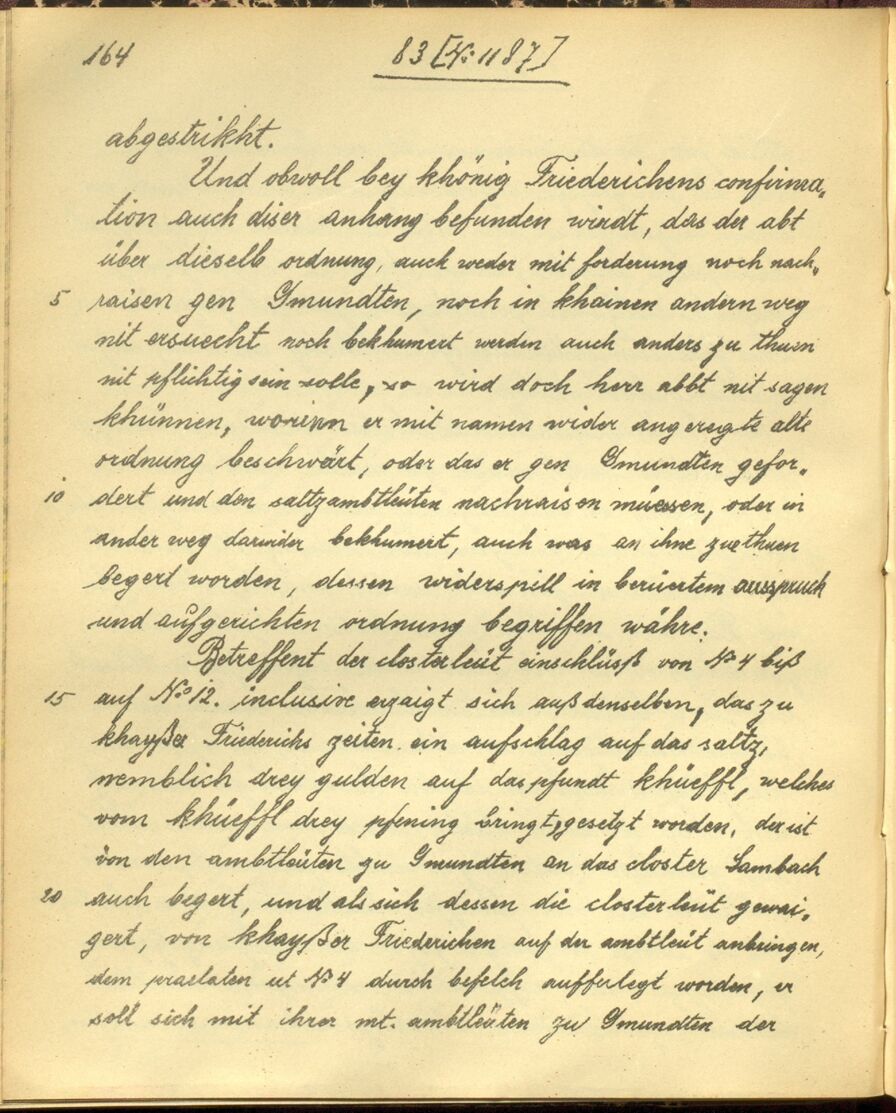 164
83 [№ 1187]
abgestrikht.
Und obwoll bey khönig Friederichens confirma„
tion auch diser anhang befunden wirdt, das der abt
über dieselb ordnung, auch weder mit forderung noch nach„
5 raisen gen Gmundten, noch in khainen andern weg
nit ersuecht noch bekhumert werden auch anders zu thuen
nit pflichtig sein solle, so wird doch herr abbt nit sagen
khünnen, worinn er mit namen wider angeregte alte
ordnung beschwärt, oder das er gen Gmundten gefor„
10 dert und den saltzambtleüten nachraisen müessen, oder in
ander weg darwider bekhumert, auch was an ihne zue thuen
begert worden, dessen widerspill in berüertem ausspruch
und aufgerichten ordnung begriffen währe.
Betreffent der closterleüt einschlüsß von № 4 biß
15 auf № 12. inclusive erzaigt sich auß denselben, das zu
khayßer Friederichs zeiten ein aufschlag auf das saltz,
nemblich drey gulden auf das pfundt khüeffl, welches
vom khüeffl drey pfening bringt, gesetzt worden, der ist
von den ambtleüten zu Gmundten an das closter Lambach
20 auch begert, und als sich dessen die closterleüt gewai„
gert, von khayßer Friederichen auf der ambtleüt anbringen,
dem praelaten ut № 4 durch befelch aufferlegt worden, er
soll sich mit ihrer mt. ambtleüten zu Gmundten der